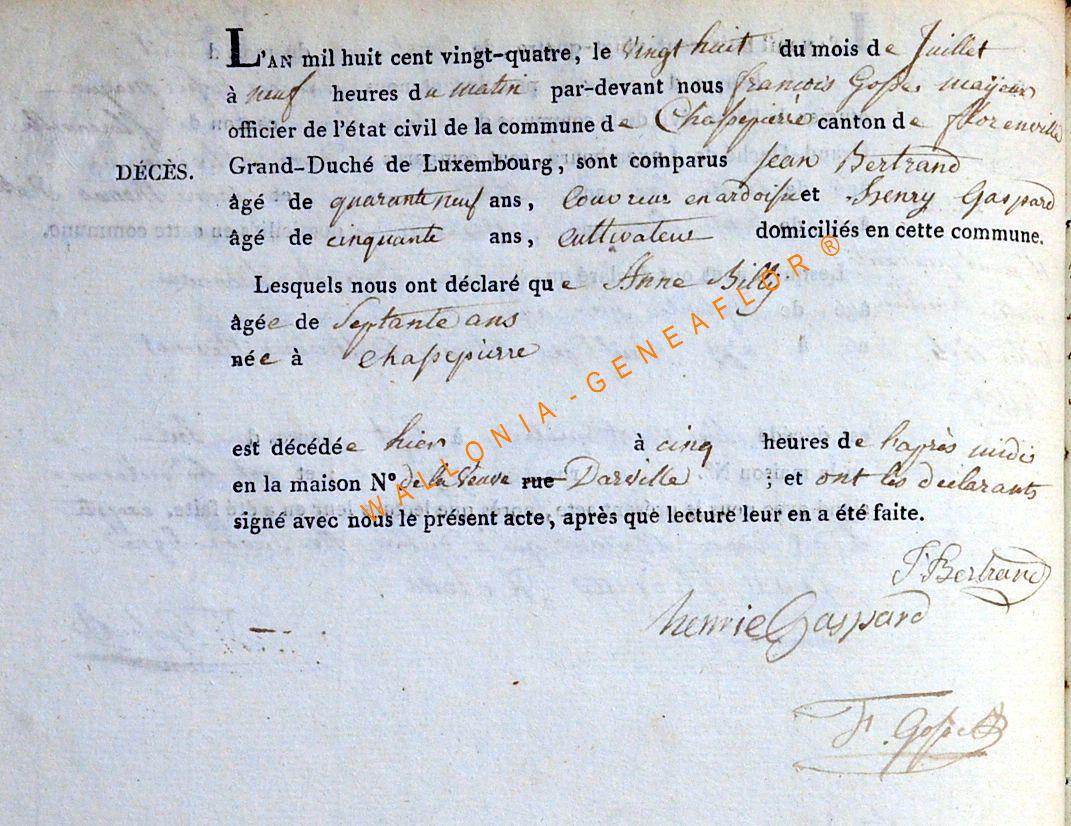 L'AN mil huit cent vingt-quatre, le vingt huit du mois de Juillet
à neuf heures du matin par-devant nous françois Gosse maÿeur
officier de l'état civil de la commune de Chassepierre canton de florenville
DÉCÈS. Grand-Duché de Luxembourg, sont comparus Jean Bertrand
âgé de quarante neuf ans, Couvreur en ardoise et Henry Gaspard
âgé de cinquante ans, cultivateur domiciliés en cette commune.
Lesquels nous ont déclaré que Anne Billy
âgée de Septante ans
née à Chassepierre
est décédée hier à cinq heures de haprès midis
en la maison N° de la Veuve rue Darville ; et ont les declarants
signé avec nous le présent acte, après que lecture leur en a été faite.
J. Bertrand
henrie Gaspard
F. Gosse
WALLONIA - GENEAFLOR ®